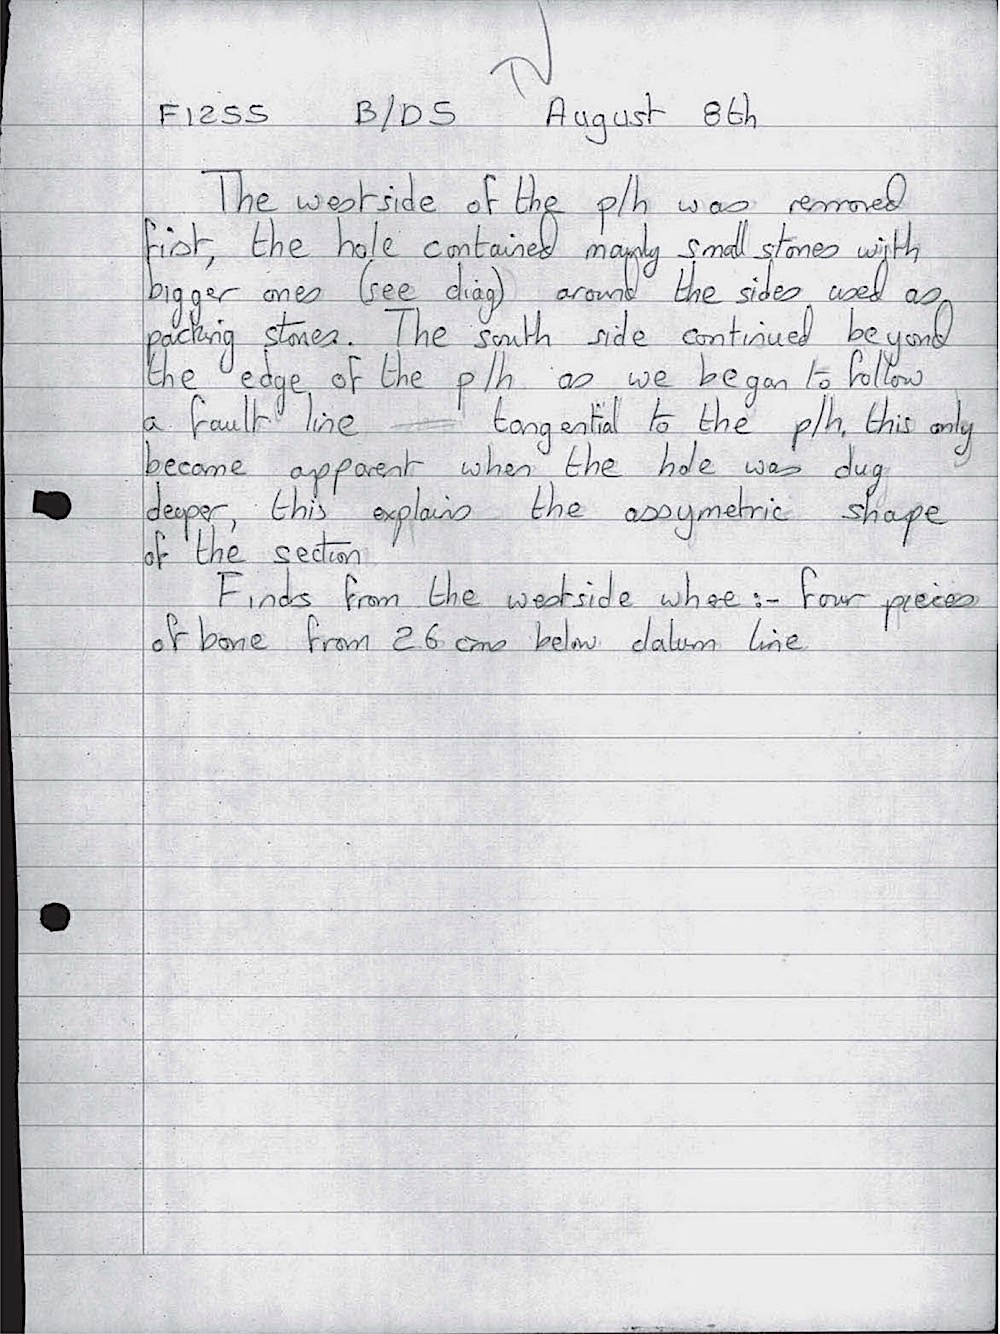 F1255 B/DS August 8th
The westside of the p/h was removed
first, the hole contained mainly small stones with
bigger ones (see diag) around the sides used as
packing stones. The south side continued beyond
the edge of the p/h as we began to follow
a fault line tangential to the p/h, this only
became apparent when the hole was dug
deeper, this explains the assymetric shape
of the section
Finds from the westside whee:- four pieces
of bone from 26 cms below datum line